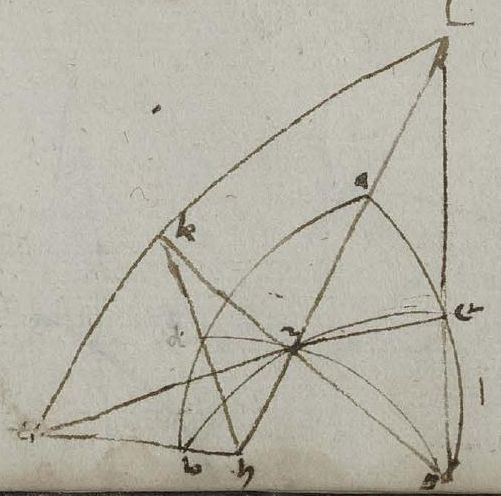 L
a
k
e
d
z
b
h
g